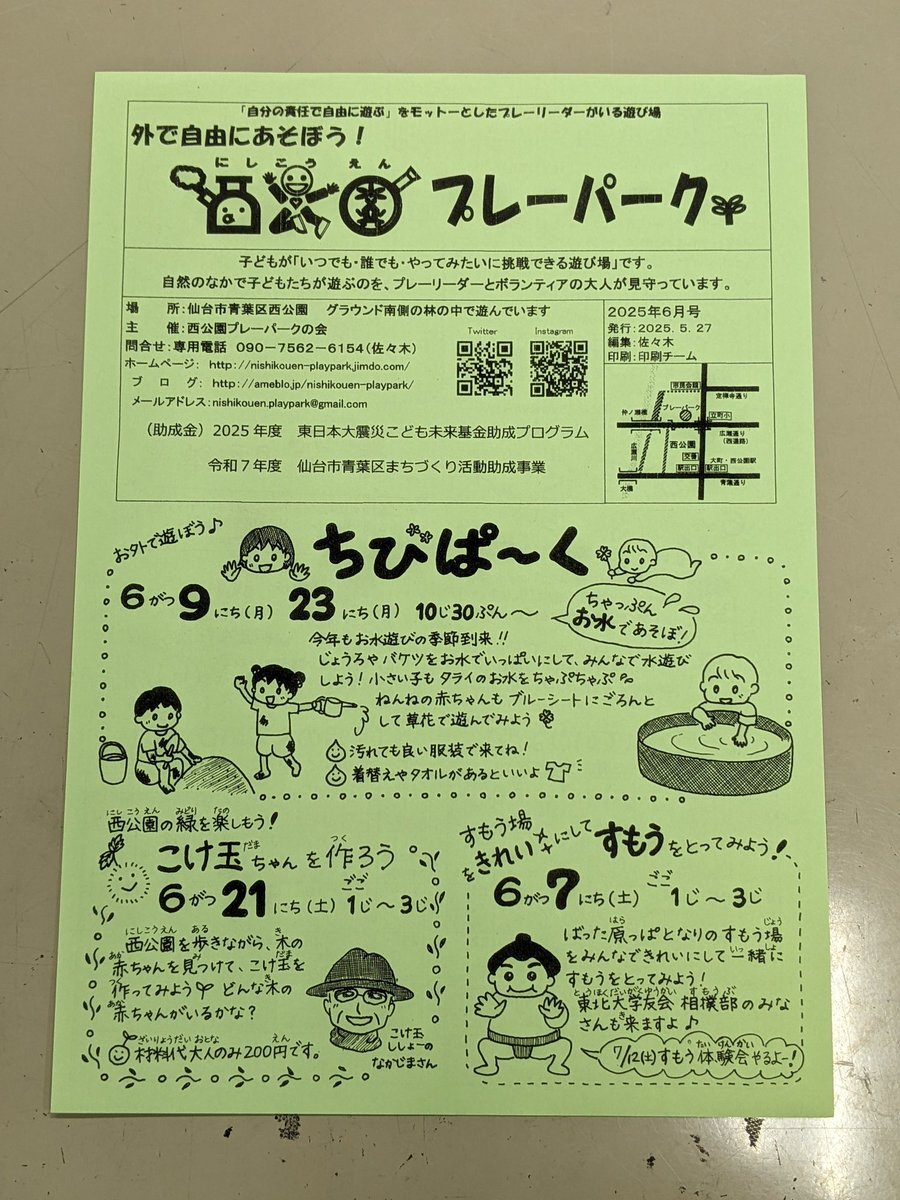 「自分の責任で自由に遊ぶ」をモットーとしたプレーリーダーがいる遊び場
外で自由にあそぼう！
にしこうえん
西公園プレーパーク
子どもが「いつでも・誰でも・やってみたいに挑戦できる遊び場」です。
自然のなかで子どもたちが遊ぶのを、プレーリーダーとボランティアの大人が見守っています。
場　所：仙台市青葉区西公園　グラウンド南側の林の中で遊んでいます
主　催：西公園プレーパークの会
問合せ：専用電話 090－7562－6154（佐々木）
ホームページ： http://nishikouen-playpark.jimdo.com/
ブ ロ グ： http://ameblo.jp/nishikouen-playpark/
メールアドレス：nishikouen.playpark@gmail.com
Twitter
Instagram
（助成金）2025年度　東日本大震災こども未来基金助成プログラム
令和７年度　仙台市青葉区まちづくり活動助成事業
2025年6月号
発行：2025. 5. 27
編集：佐々木
印刷：印刷チーム
市民会館
定禅寺通り
仲ノ瀬橋
プレーパーク
立町小
広瀬通り
（西道路）
広瀬川
西公園
交番
大町・西公園駅
駅出口
駅出口
大橋
青葉通り
お外で遊ぼう♪
ちびぱ～く
6がつ9にち(月) 23にち(月) 10じ30ぷん～
ちゃっぷん
お水であそぼ!
今年もお水遊びの季節到来!!
じょうろやバケツをお水でいっぱいにして、みんなで水遊び
しよう！小さい子もタライのお水をちゃぷちゃぷ
ねんねの赤ちゃんもブルーシートにごろんと
して草花で遊んでみよう
汚れても良い服装で来てね！
着替えやタオルがあるといいよ
にしこうえん みどり たの
西公園の緑を楽しもう！
だま つく
こけ玉ちゃんを作ろう
ごご
6がつ21にち(土) 1じ～3じ
にしこうえん ある き
西公園を歩きながら、木の
あか み だま
赤ちゃんを見つけて、こけ玉を
つく き
作ってみよう どんな木の
あか
赤ちゃんがいるかな？
ざいりょうだい おとな えん
材料代大人のみ200円です。
こけ玉
ししょーの
なかじまさん
すもう場
をきれいにして すもうをとってみよう！
ごご
6がつ7にち(土) 1じ～3じ
はら じょう
ばった原っぱとなりのすもう場
いっしょ
をみんなできれいにして一緒に
すもうをとってみよう！
とうほくだいがくゆうかい すもうぶ
東北大学友会 相撲部のみな
き
さんも来ますよ♪
たいけんかい
7/12(土)すもう体験会やるよー！